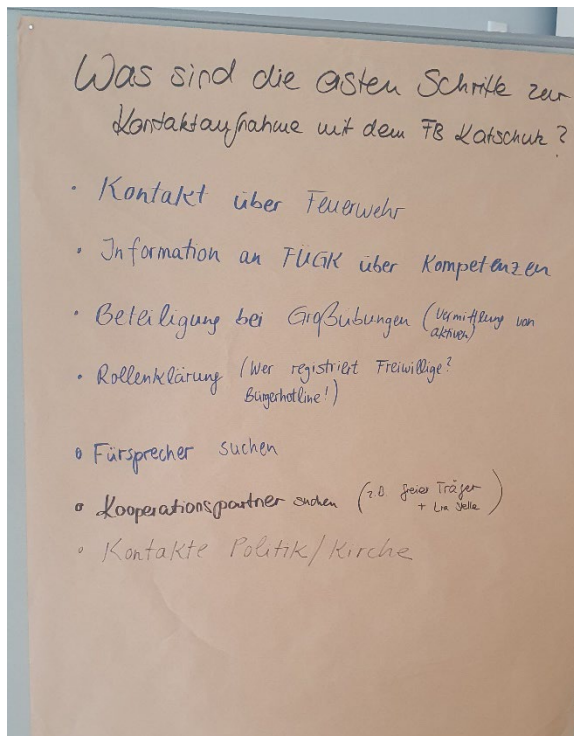 Was sind die ersten Schritte zur
Kontaktaufnahme mit dem FB Katschutz?
• Kontakt über Feuerwehr
• Information an FÜGK über Kompetenzen
• Beteiligung bei Großübungen (Vermittlung von
aktiven)
• Rollenklärung (Wer registriert Freiwillige?
Bürgerhotline!)
• Fürsprecher suchen
• Kooperationspartner suchen (z.B. freier Träger
+
• Kontakte Politik/Kirche